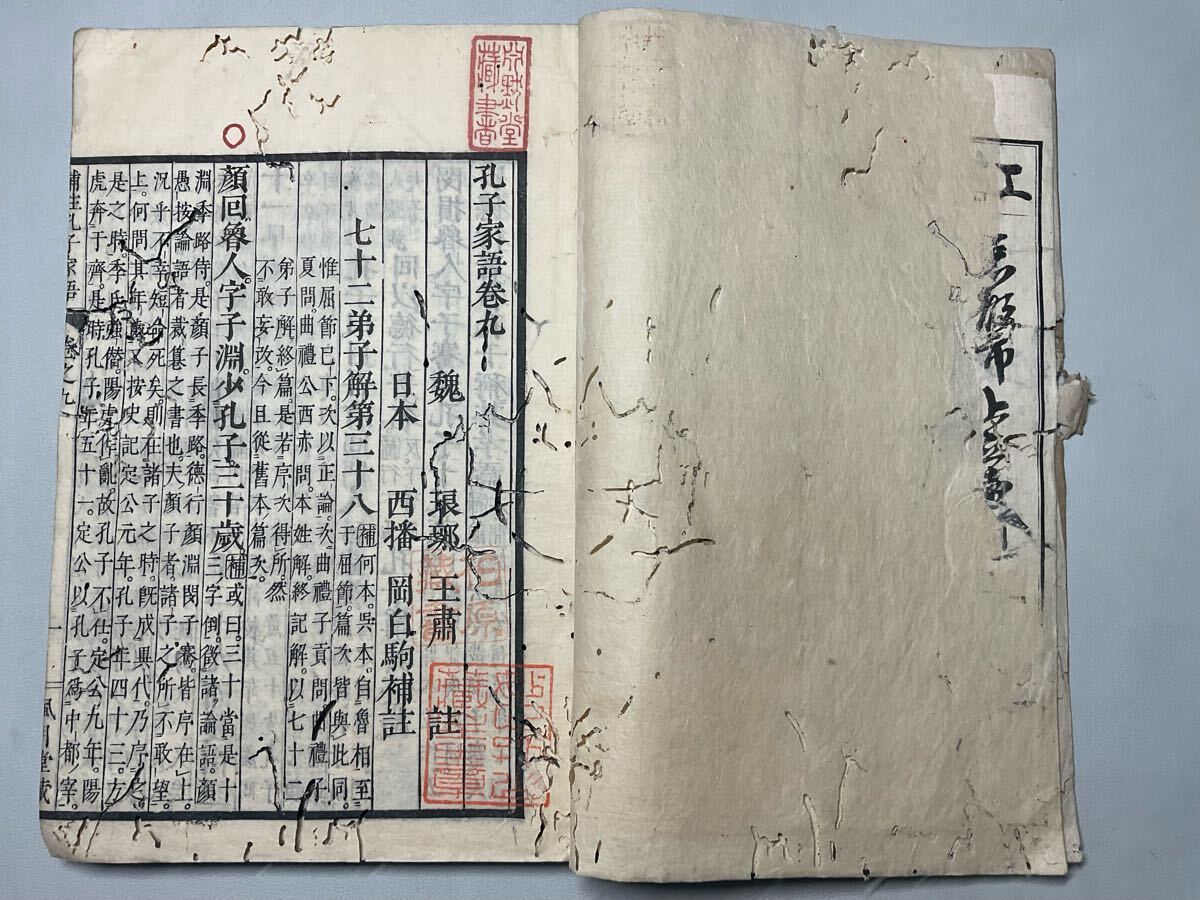 孔子家語卷九
魏 琅琊 王肅 註
日本 西播 岡白駒補註
七十二弟子解第三十八
補何本吳本自魯相至
于屈節篇次皆與此同
惟屈節已下次以正論次曲禮子貢問曲禮子
夏問曲禮公西赤問本姓解終記解以七十二
弟子解終篇是若序次得所然
不敢妄改今且從舊本篇次
顏回魯人字子淵少孔子三十歲
補或曰三十當是十
三字倒徵諸論語顏
淵季路侍是顏子長季路德行顏淵閔子騫皆序在上
愚按論語者裁纂之書也夫顏子者諸子之所不敢望
況乎不幸短命死矣則在諸子之時既成異代乃序之
上何問其年又按史記定公元年孔子年四十三方
是之時季氏強僭陽虎作亂故孔子不仕定公九年陽
虎奔于齊是時孔子年五十一定公以孔子為中都宰
補註孔子家語 卷之九 一 風月堂藏
藏書